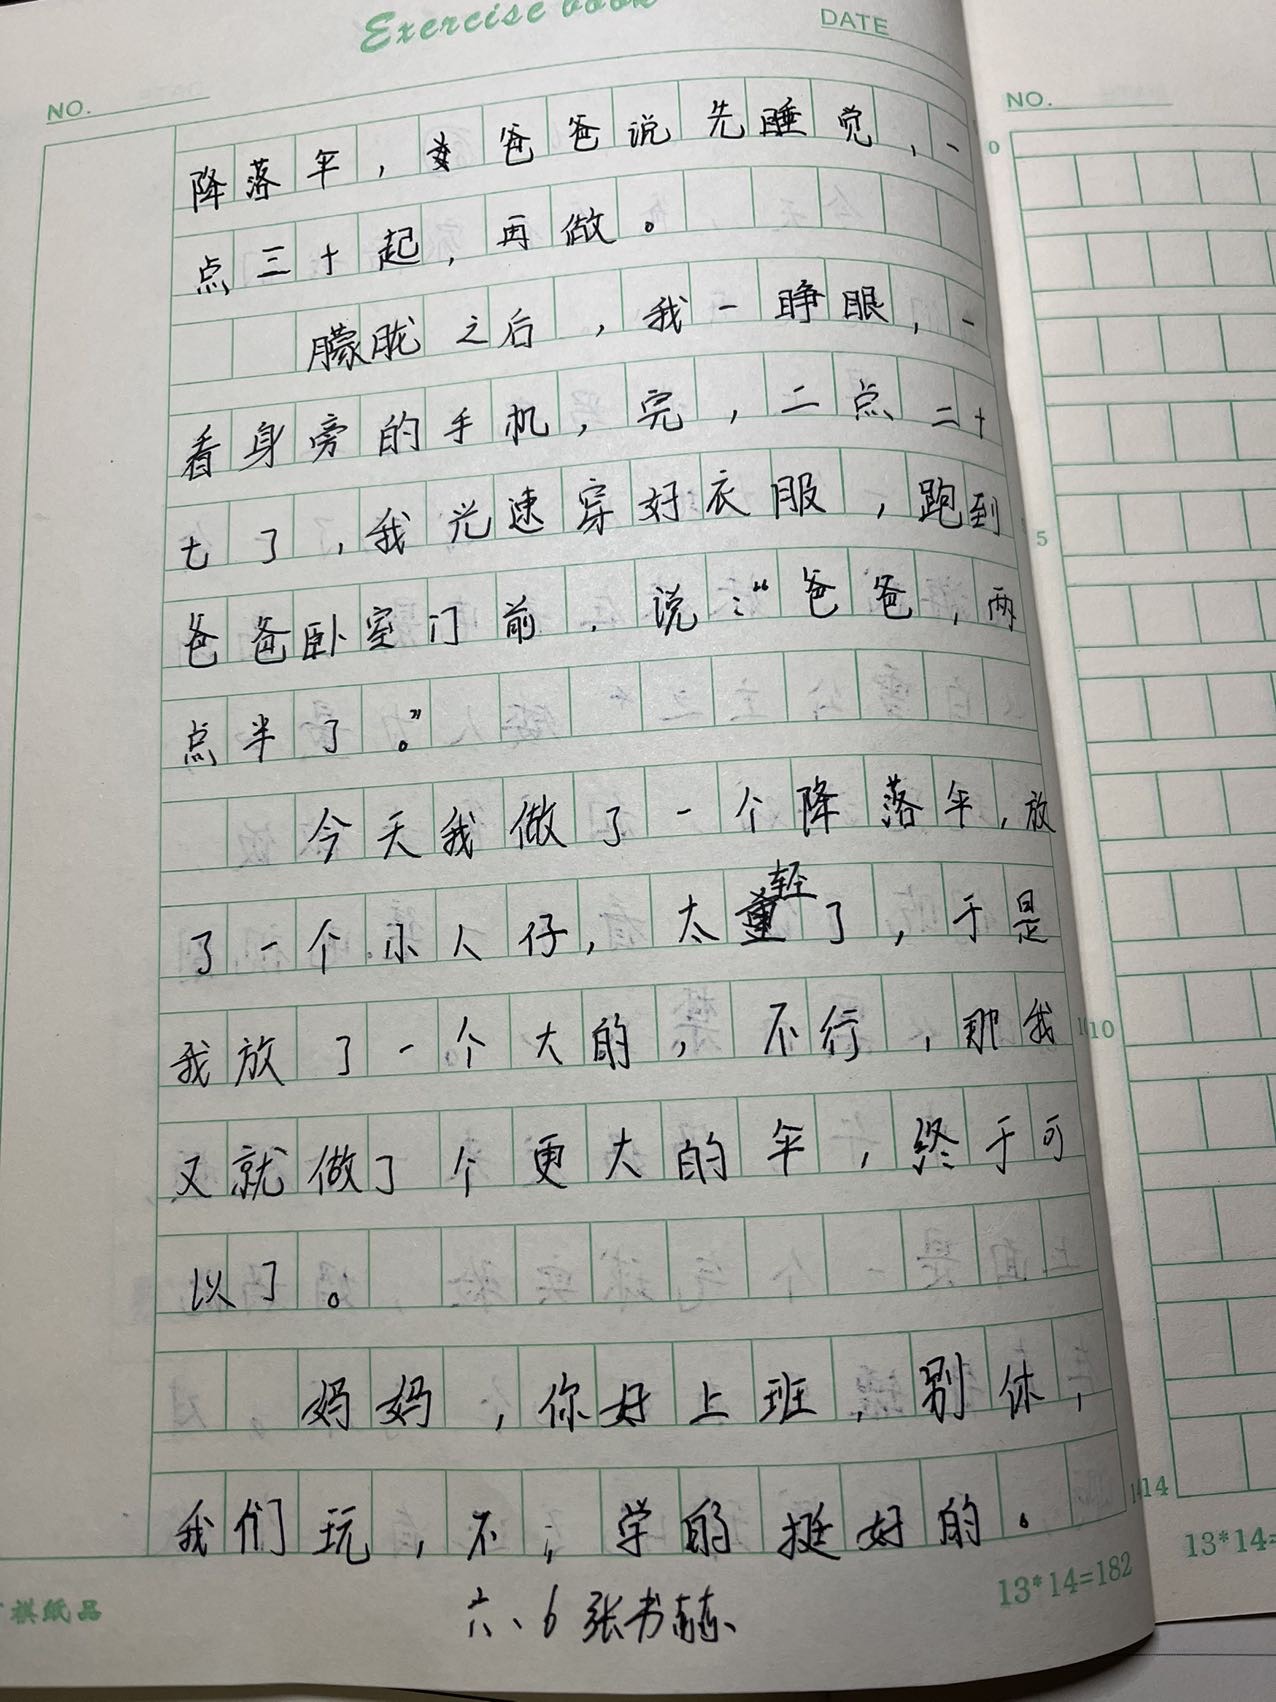 Exercise book
DATE
NO.
降落伞，爸爸说先睡觉，一
点三十起，再做。
朦胧之后，我一睁眼，一
看身旁的手机，完，二点二十
七了，我光速穿好衣服，跑到
爸爸卧室门前，说：“爸爸，两
点半了。”
今天我做了一个降落伞，放
了一个小人仔，太轻了，于是
我放了一个大的，不行，那我
又就做了个更大的伞，终于可
以了。
妈妈，你好上班，别休，
我们玩，不，学的挺好的。
六、6 张书赫
祺纸品
13*14=182
NO.
0
5
10
14
13*14=